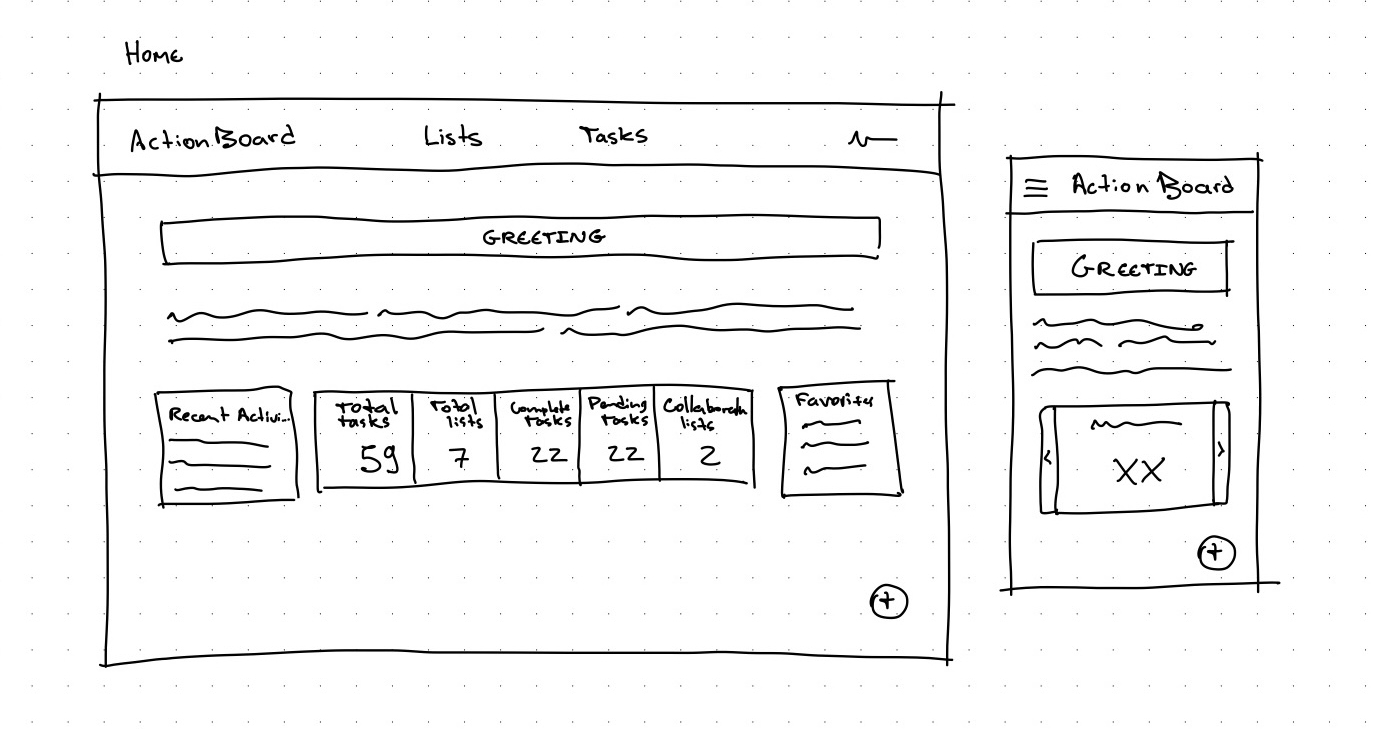 Home
ActionBoard Lists Tasks
GREETING
Recent Activi...
Total
tasks
59
Total
lists
7
Complete
tasks
22
Pending
tasks
22
lists
2
Favorites
☰ Action Board
GREETING
< XX >
+
+